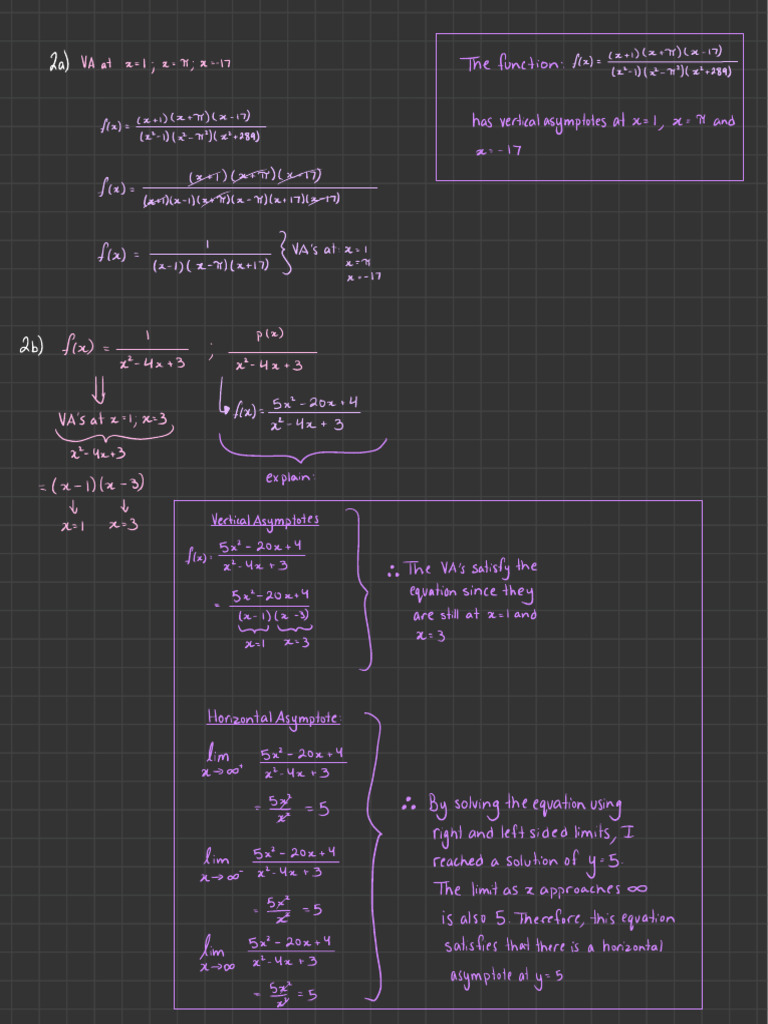 2a) VA at x=1; x=π; x=-17
f(x) = (x+1)(x+π)(x-17) / (x²-1)(x²-π²)(x²+289)
f(x) = (x+1)(x+π)(x-17) / (x+1)(x-1)(x+π)(x-π)(x+17)(x-17)
f(x) = 1 / (x-1)(x-π)(x+17) } VA's at: x=1
x=π
x=-17
The function: f(x) = (x+1)(x+π)(x-17) / (x²-1)(x²-π²)(x²+289)
has vertical asymptotes at x=1, x=π and
x=-17
2b) f(x) = 1 / x²-4x+3 ; p(x) / x²-4x+3
VA's at x=1; x=3
x²-4x+3
=(x-1)(x-3)
x=1 x=3
f(x) = 5x²-20x+4 / x²-4x+3
explain:
Vertical Asymptotes
f(x) = 5x²-20x+4 / x²-4x+3
= 5x²-20x+4 / (x-1)(x-3)
x=1 x=3
∴ The VA's satisfy the
equation since they
are still at x=1 and
x=3
Horizontal Asymptote:
lim x→∞⁺ 5x²-20x+4 / x²-4x+3
= 5x² / x² = 5
lim x→∞⁻ 5x²-20x+4 / x²-4x+3
= 5x² / x² = 5
lim x→∞ 5x²-20x+4 / x²-4x+3
= 5x² / x² = 5
∴ By solving the equation using
right and left sided limits, I
reached a solution of y=5.
The limit as x approaches ∞
is also 5. Therefore, this equation
satisfies that there is a horizontal
asymptote at y=5